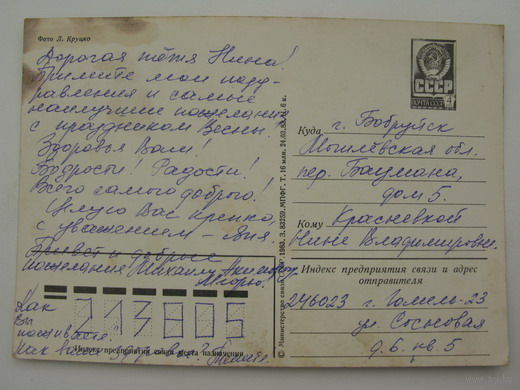 Фото Л. Круцко
Дорогая тётя Нина!
Примите мои позд-
равления и самые
наилучшие пожелания
с праздником Весны!
Здоровья Вам!
Бодрости! Радости!
Всего самого доброго!
Целую Вас крепко,
с уважением – Аня.
Привет и добрые
пожелания Михаилу
Игорю.
Как
Вы
поживаете?
Как Ваше здоровье? Пишите.
213805
Индекс предприятия связи места назначения
© Министерство связи СССР, 1983. З. 83259. МПФГ. Т. 16 млн. 24.03.83. Ц. 6 к.
СССР
4
Куда
г. Бобруйск
Могилёвская обл.
пер. Баумана,
дом 5.
Кому
Красневской
Нине Владимировне.
Индекс предприятия связи и адрес
отправителя
246023 г. Гомель-23
ул. Сосновая
д. 6. кв. 5